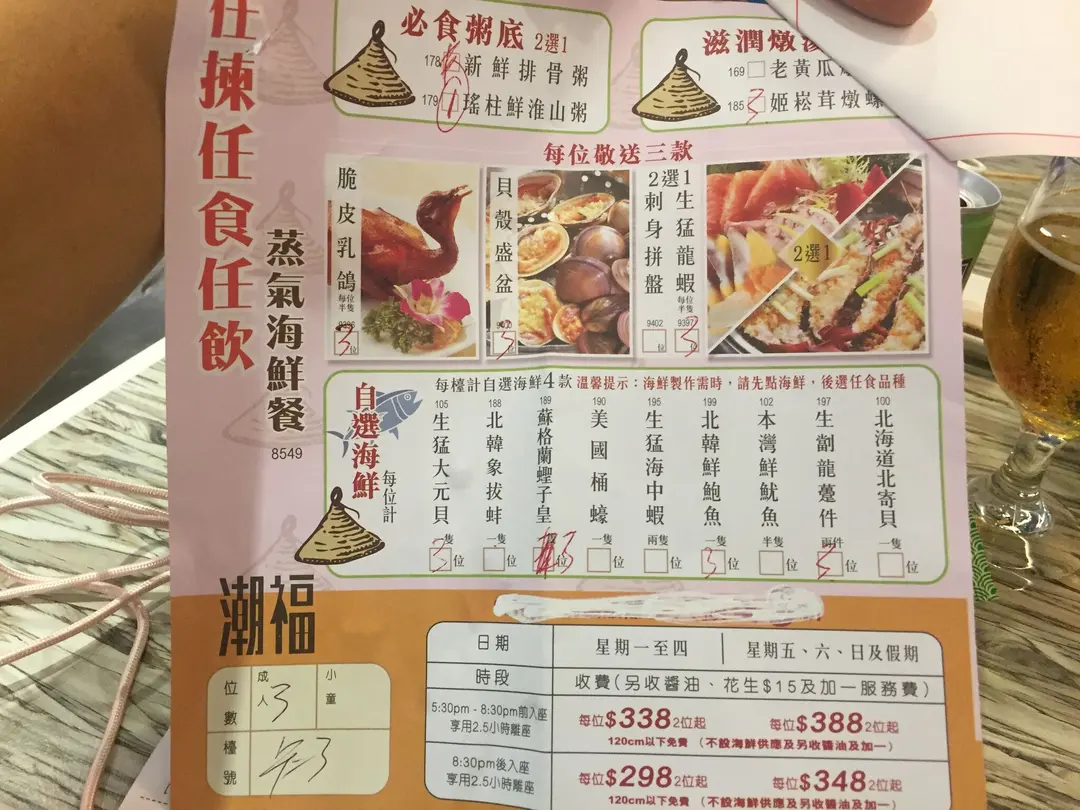 任揀任食任飲
蒸氣海鮮餐
8549
必食粥底 2選1
178 新鮮排骨粥
179 瑤柱鮮淮山粥
滋潤燉
169 老黃瓜
185 3 姬崧茸燉螺
每位敬送三款
脆皮乳鴿
每位半隻
3 位
貝殼盛盆
3 位
2選1
刺身拼盤
9402
位
生猛龍蝦
每位半隻
9397
3 位
2選1
自選海鮮
每位計
每檯計自選海鮮4款 溫馨提示：海鮮製作需時，請先點海鮮，後選任食品種
105 生猛大元貝 一隻 3 位
188 北韓象拔蚌 一隻 位
189 蘇格蘭蟶子皇 3 位
190 美國桶蠔 一隻 位
195 生猛海中蝦 兩隻 位
199 北韓鮮鮑魚 一隻 3 位
102 本灣鮮魷魚 半隻 位
197 生劏龍躉件 兩件 3 位
100 北海道北寄貝 一隻 位
潮福
位數
成人 3
小童
檯號
日期
星期一至四
星期五、六、日及假期
時段
收費(另收醬油、花生$15及加一服務費)
5:30pm - 8:30pm前入座
享用2.5小時離座
每位$338 2位起
每位$388 2位起
120cm以下免費 (不設海鮮供應及另收醬油及加一)
8:30pm後入座
享用2.5小時離座
每位$298 2位起
每位$348 2位起
120cm以下免費 (不設海鮮供應及另收醬油及加一)